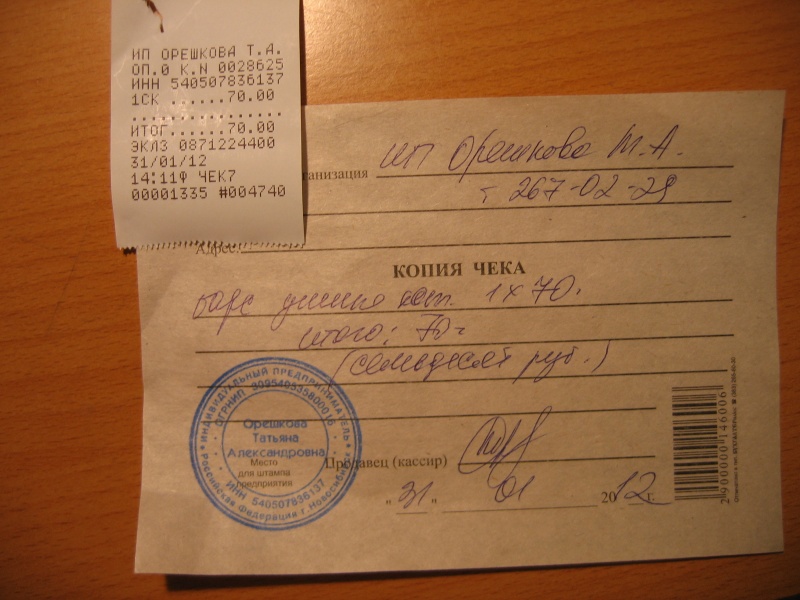 ИП ОРЕШКОВА Т.А.
ОП.0 К.N 0028625
ИНН 540507836137
1СК ......70.00
ИТОГ......70.00
ЭКЛЗ 0871224400
31/01/12
14:11Ф ЧЕК7
00001335 #004740
ганизация ИП Орешкова Т.А.
т 267-02-29
Адрес:
КОПИЯ ЧЕКА
1 х 70.
итого: 70-
(семьдесят руб.)
ИНДИВИДУАЛЬНЫЙ ПРЕДПРИНИМАТЕЛЬ
ОГРНИП 309540535800016
Орешкова
Татьяна
Александровна
Место
для штампа
предприятия
ИНН 540507836137
Российская Федерация г.Новосибирск
Продавец (кассир)
„ 31 “ 01 2012 г.
2900000146006